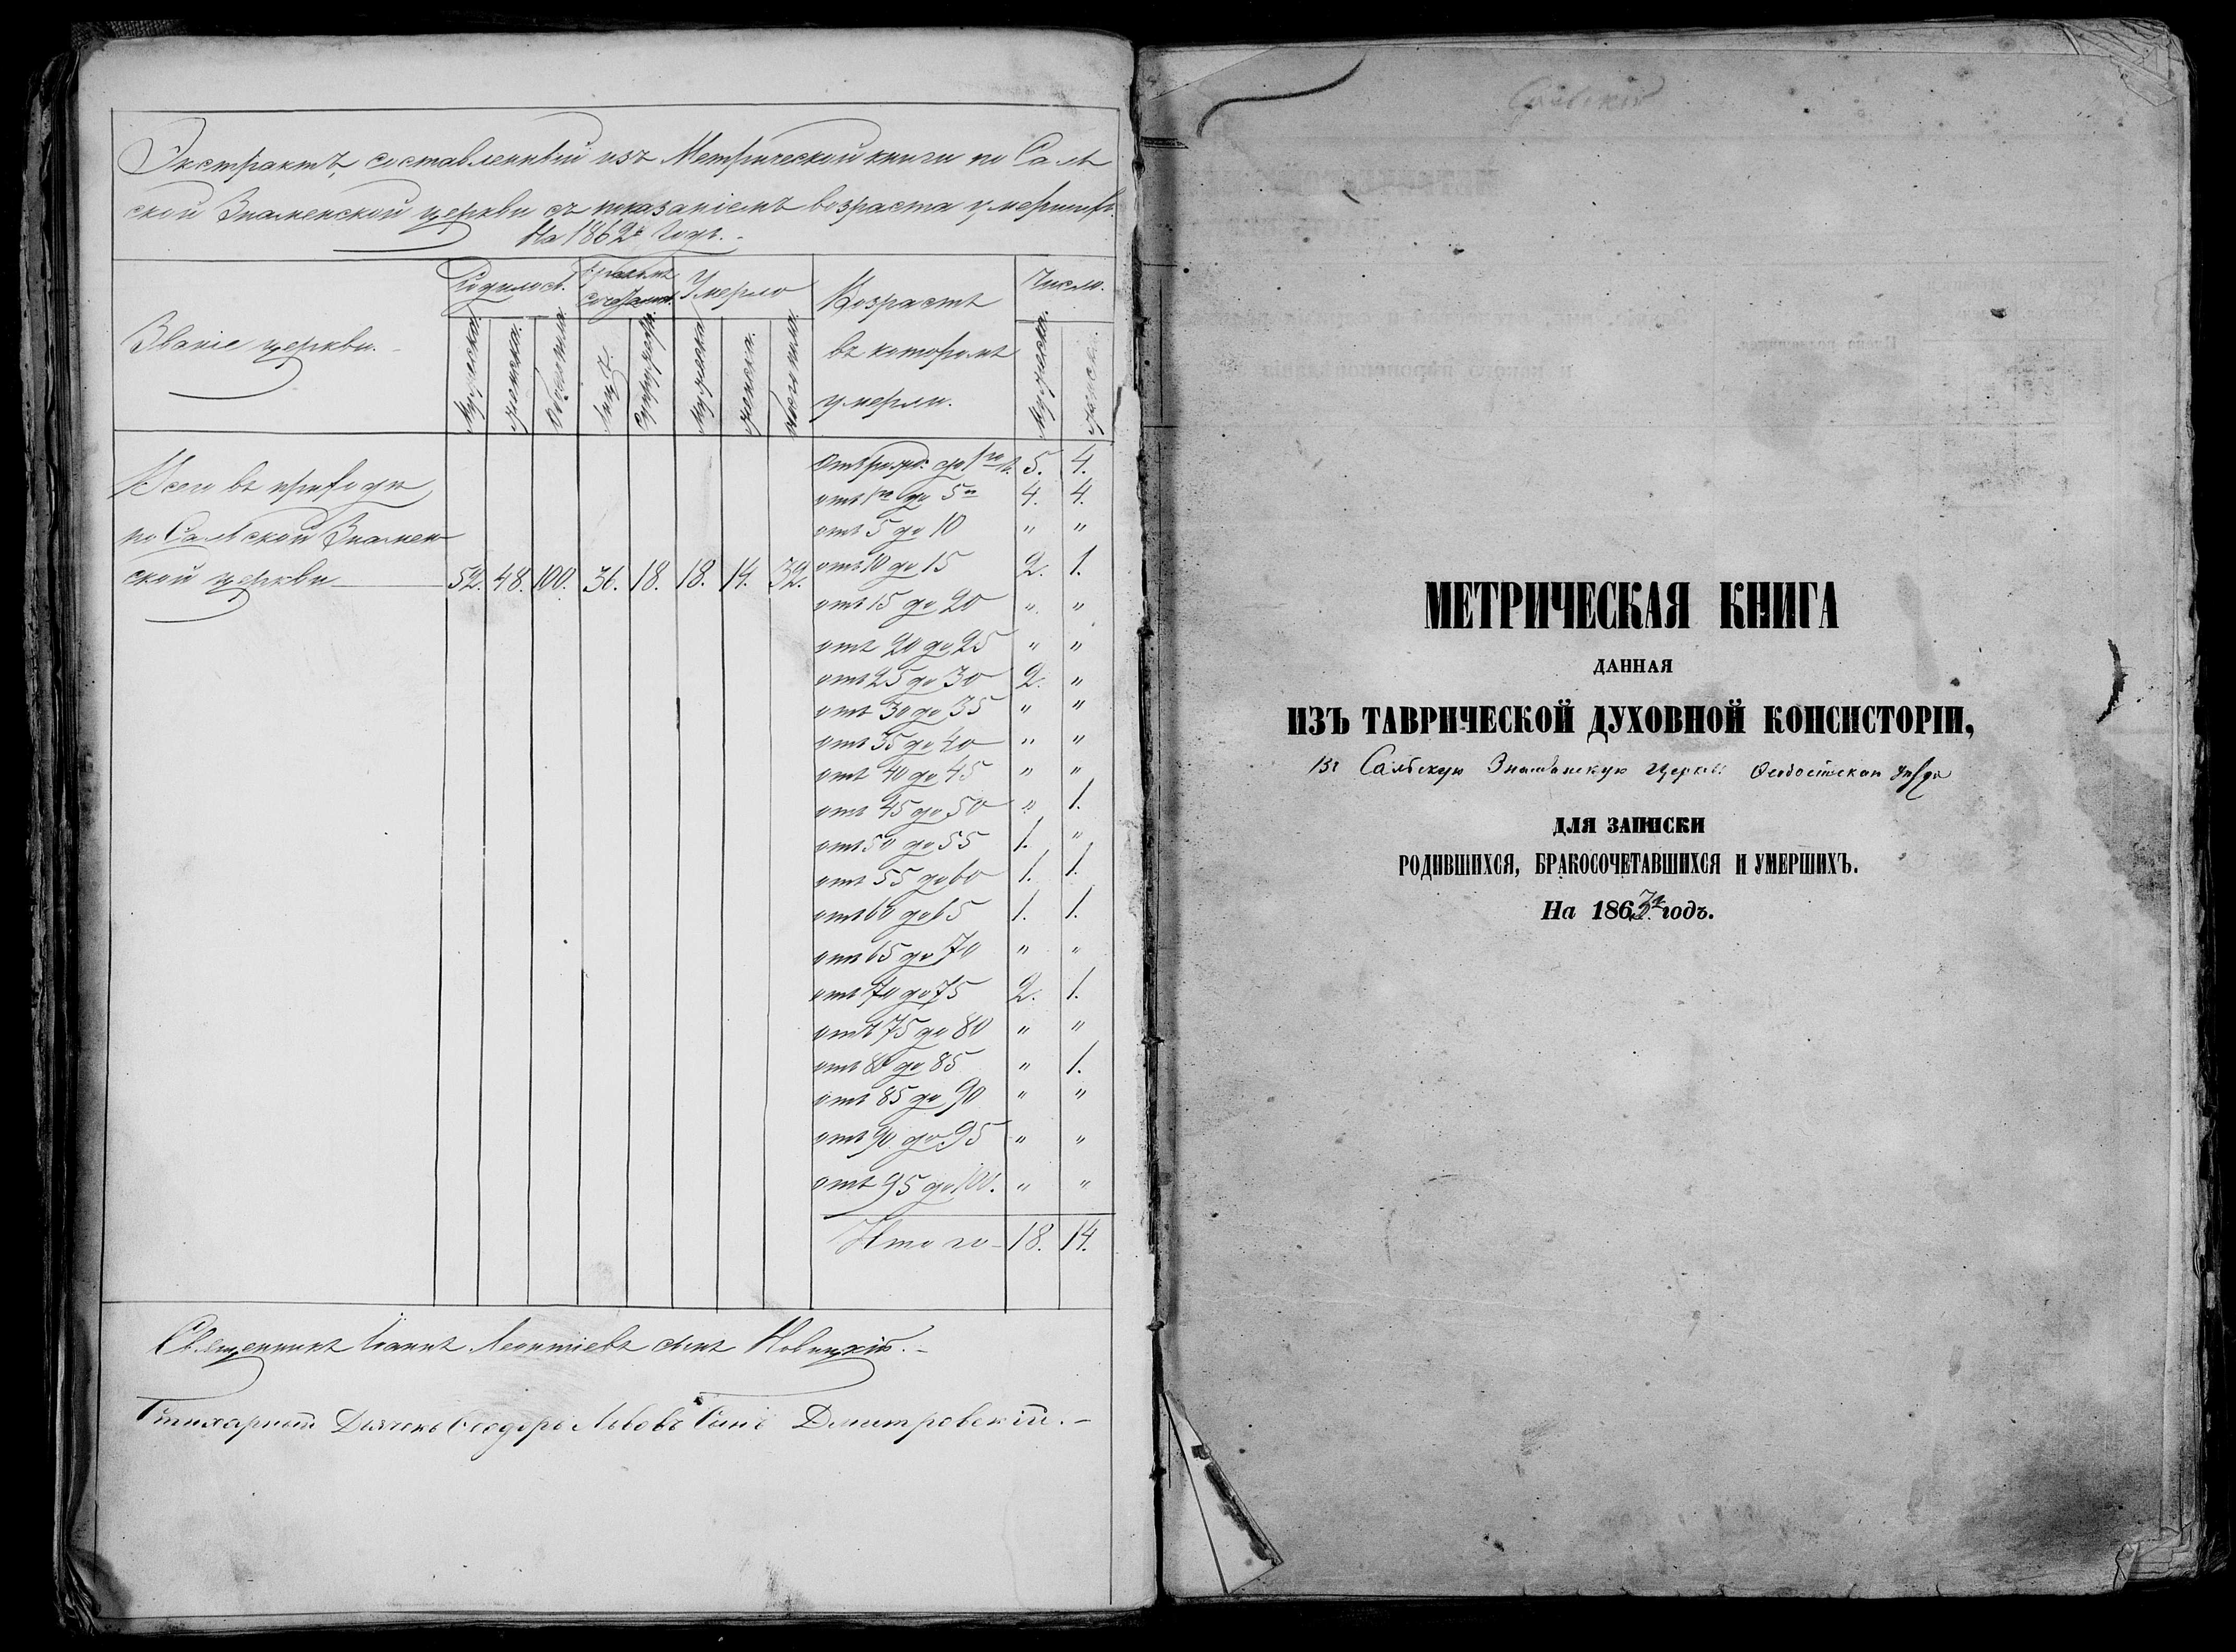 Экстрактъ, составленный изъ Метрической книги по Саль
ской Знаменской церкви съ показаніемъ возраста умершихъ.
На 1862й Годъ.
Званіе церкви.
Родилось.
Бракомъ
сочетал.
Умерло
Возрастъ
въ которомъ
умерли.
Число.
Мужеска.
женска.
Обоего пола.
Лицъ.
Супружес.
Мужеска
женска.
Обоего пола.
Мужеска.
женска.
Всего въ приходѣ
по Сальской Знамен
ской церкви
52. 48. 100. 36. 18. 18. 14. 32.
отъ рожд. до 1го 5. 4.
отъ 1го до 5и 4. 4.
отъ 5 до 10 " "
отъ 10 до 15 2. 1.
отъ 15 до 20 " "
отъ 20 до 25 " "
отъ 25 до 30 2. "
отъ 30 до 35 " "
отъ 35 до 40 " "
отъ 40 до 45 " "
отъ 45 до 50 " 1.
отъ 50 до 55 1. "
отъ 55 до 60 1. 1.
отъ 60 до 65 1. 1.
отъ 65 до 70 " "
отъ 70 до 75 2. 1.
отъ 75 до 80 " "
отъ 80 до 85 " 1.
отъ 85 до 90 " "
отъ 90 до 95 " "
отъ 95 до 100. " "
Итого 18. 14.
Священникъ Іоаннъ Леонтіевъ сынъ Новицкій.
Стихарный Дьячекъ Ѳеодоръ Львовъ Сынъ Дмитровскій.
Сальской
МЕТРИЧЕСКАЯ КНИГА
ДАННАЯ
ИЗЪ ТАВРИЧЕСКОЙ ДУХОВНОЙ КОНСИСТОРІИ,
Въ Сальскую Знаменскую Церковь Ѳеодосійскаго Уѣзда
ДЛЯ ЗАПИСКИ
РОДИВШИХСЯ, БРАКОСОЧЕТАВШИХСЯ И УМЕРШИХЪ.
На 1863й годъ.